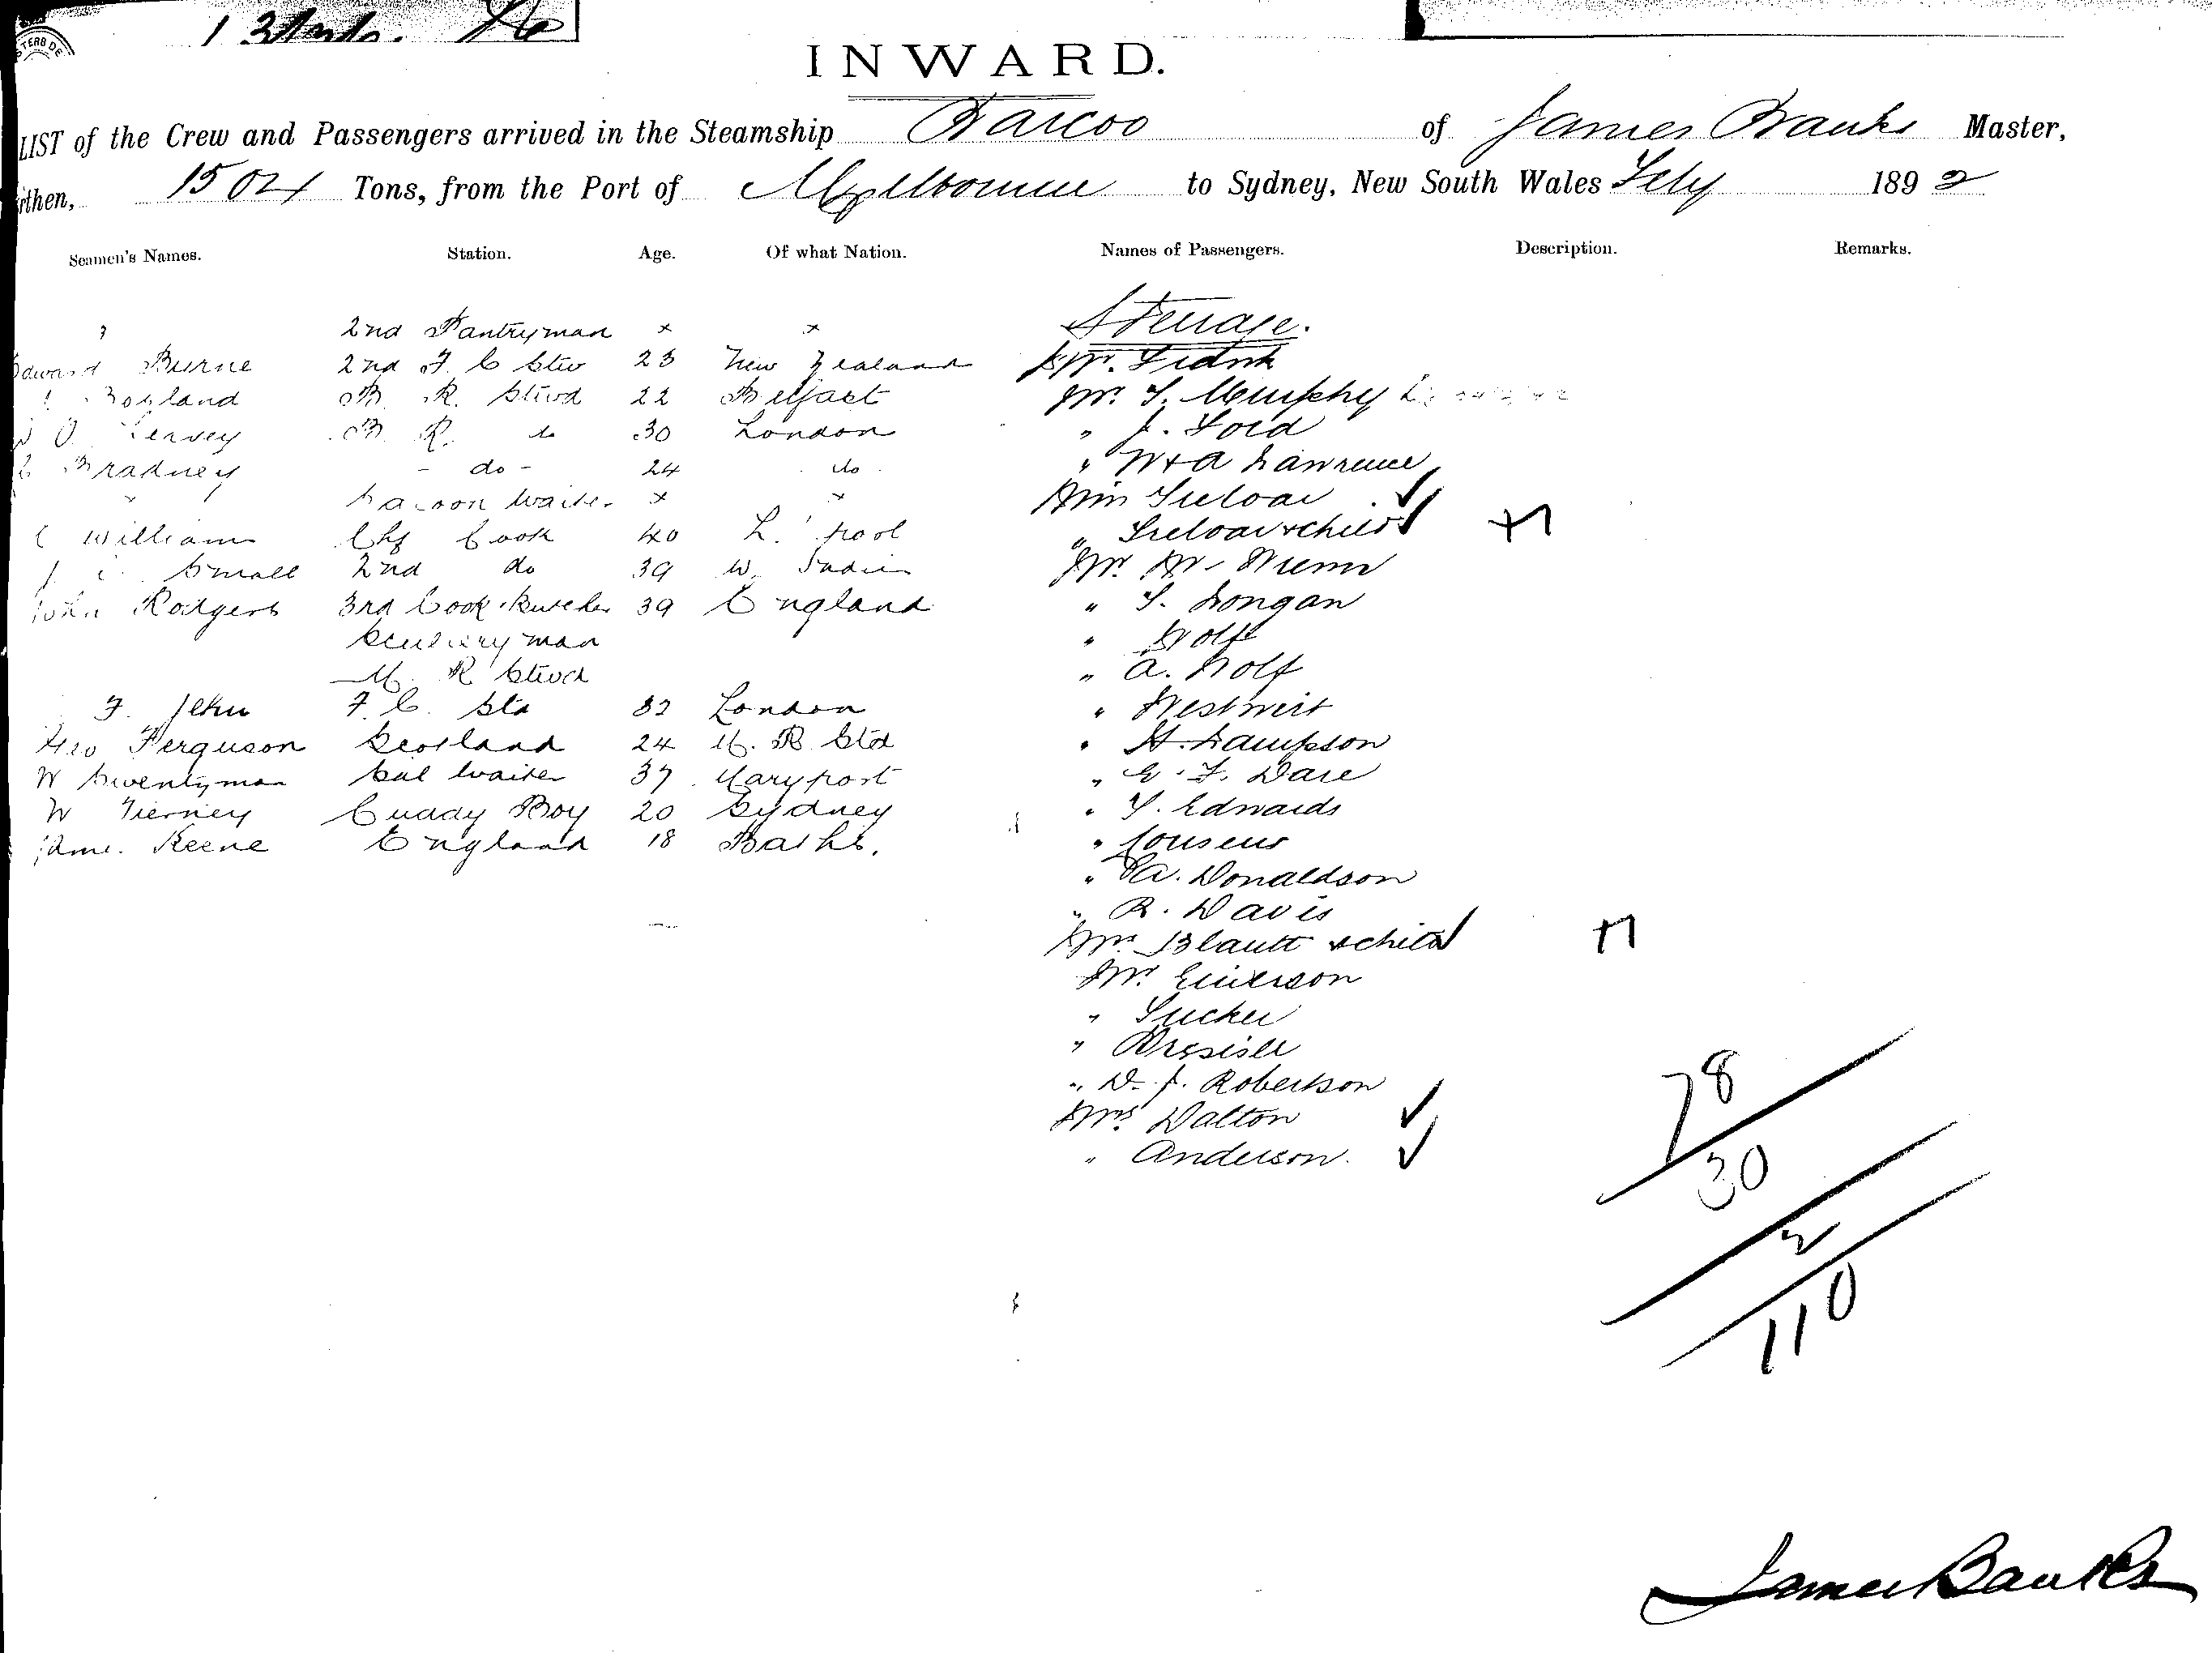 INWARD.
LIST of the Crew and Passengers arrived in the Steamship Barcoo of James Banks Master,
then, 1504 Tons, from the Port of Melbourne to Sydney, New South Wales 1892
Seamen's Names. Station. Age. Of what Nation. Names of Passengers. Description. Remarks.
Steerage.
2nd Pantryman × ×
Edward Burne 2nd F C Stew 23 New Zealand
B. R. Stewd 22 Belfast Mr. T. Murphy
B. R. do 30 London " J. Ford
Bradney - do - 24 do " W & A Lawrence
Saloon Waiter × × Miss Treloar
William Chf Cook 40 L'pool " Treloar & child +1
Small 2nd do 39 W. Indies Mr. W. Nunn
John Rodgers 3rd Cook & Butcher 39 England " T. Longan
Scullery man " Wolf
M. R Stewd " A. Wolf
F. Jehu F. C. Std 32 London
Geo Ferguson Scotland 24 M. R Std " H. Sampson
W Swentyman Sal Waiter 37 Maryport " E. F. Dare
W Tierney Cuddy Boy 20 Sydney " T. Edwards
James Keene England 18 Baths.
" Donaldson
" R. Davis
Mrs Blautt & child +1
Mr. Emerson
" Tucker
" D. J. Robertson
Mrs Dalton
" Anderson.
78
30
2
110
James Banks